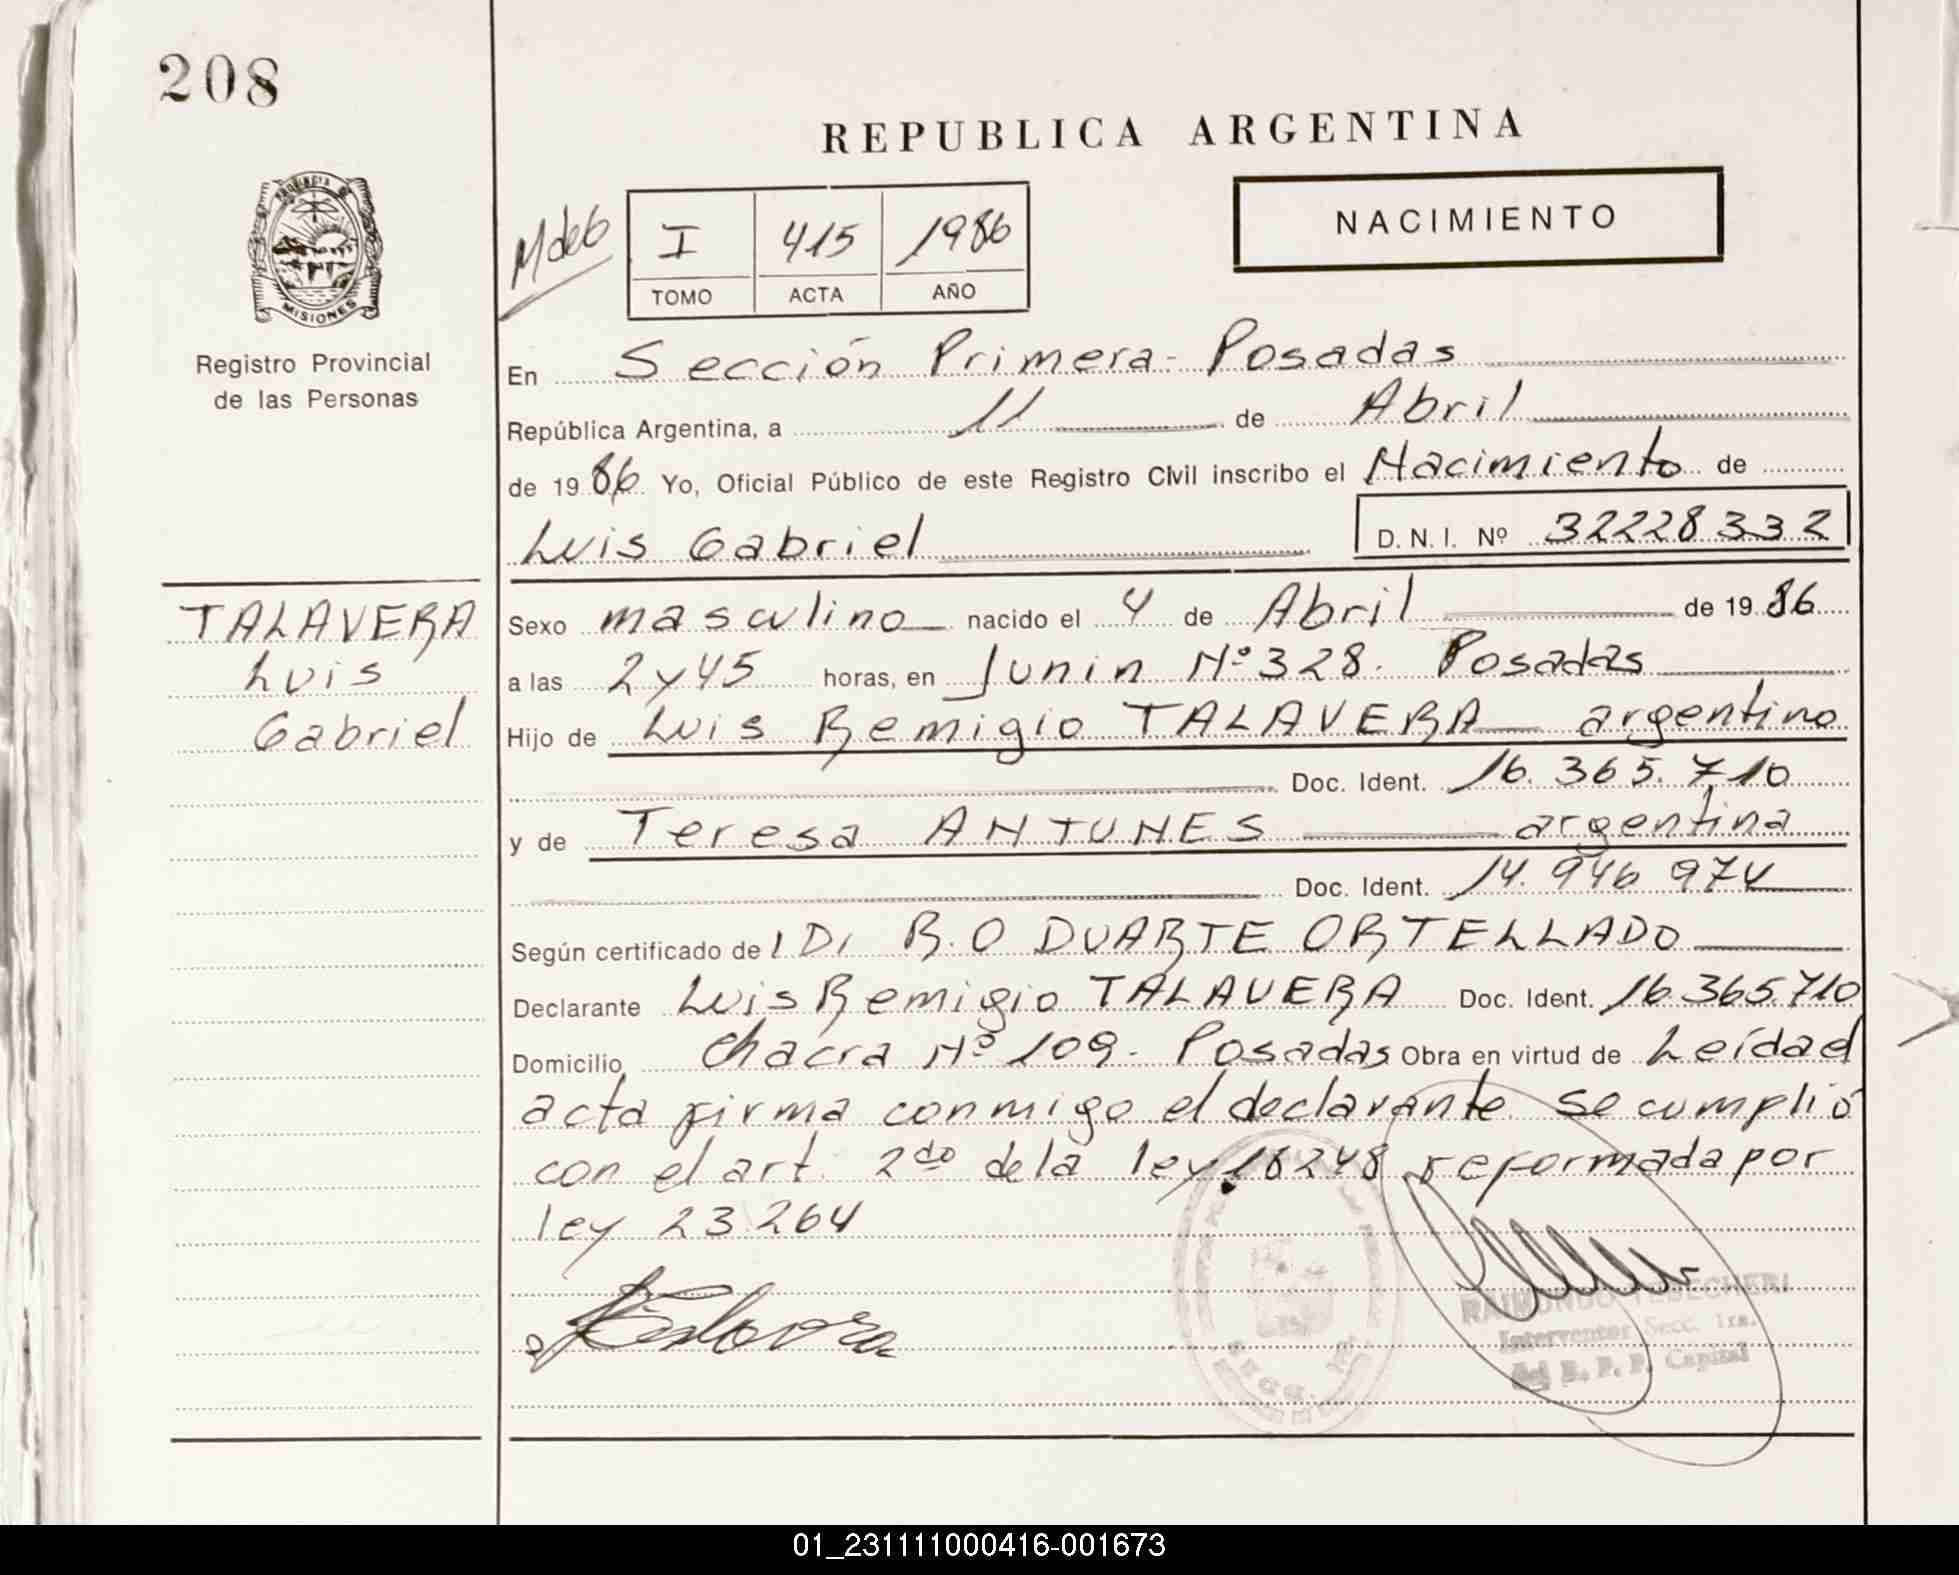 208
REPUBLICA ARGENTINA
PROVINCIA DE
MISIONES
Registro Provincial
de las Personas
I 415 1986
TOMO ACTA AÑO
NACIMIENTO
En Sección Primera- Posadas
República Argentina, a 11 de Abril
de 1986 Yo, Oficial Público de este Registro Civil inscribo el Nacimiento de
Luis Gabriel D. N. I. Nº 32228332
TALAVERA
Luis
Gabriel
Sexo masculino nacido el 4 de Abril de 1986
a las 2 y 45 horas, en Junin Nº 328. Posadas
Hijo de Luis Remigio TALAVERA argentino
Doc. Ident. 16.365.710
y de Teresa ANTUNES argentina
Doc. Ident. 14.946 974
Según certificado de R.O DUARTE ORTELLADO
Declarante Luis Remigio TALAVERA Doc. Ident. 16.365.710
Domicilio Chacra Nº 109- Posadas Obra en virtud de Leída el
acta firma conmigo el declarante se cumplió
con el art. 2do de la ley 18248 reformada por
ley 23.264
RAIMUNDO
Interventor Secc. 1ra.
del R. P. P. Capital
01_231111000416-001673